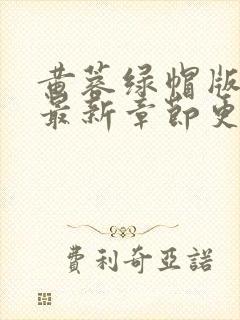 黄蓉绿帽版
最新章节更
费利奇亚諾